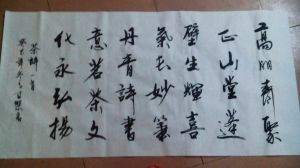 高朋齊聚
正山堂蓬
壁生輝喜
氣長妙筆
丹青詩書
意茗茶文
化永弘揚
一首
癸巳年冬